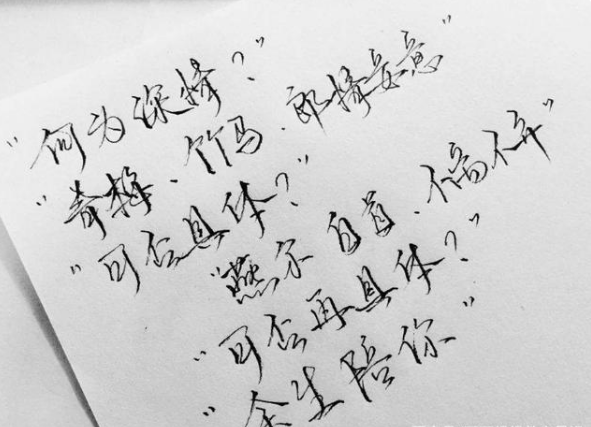 “何为深情？”
“青梅、竹马、郎情妾意”
“可否具体？”
“燕尔、白首、偕伴”
“可否再具体？”
“余生陪你”